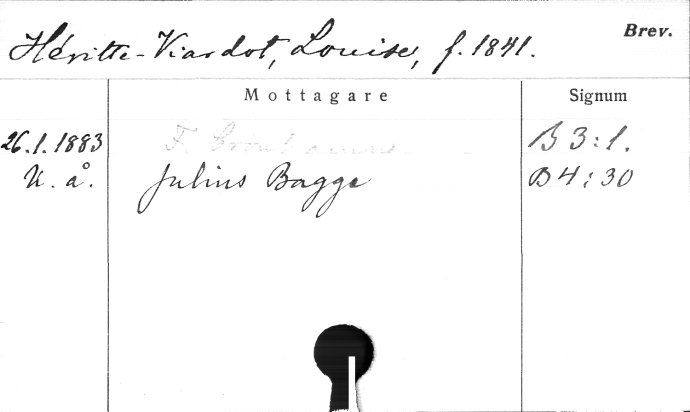 Héritte-Viardot, Louise, f. 1841.
Brev.
Mottagare Signum
26.1.1883 F. B 3:1.
U. å. Julius Bagge B 4:30